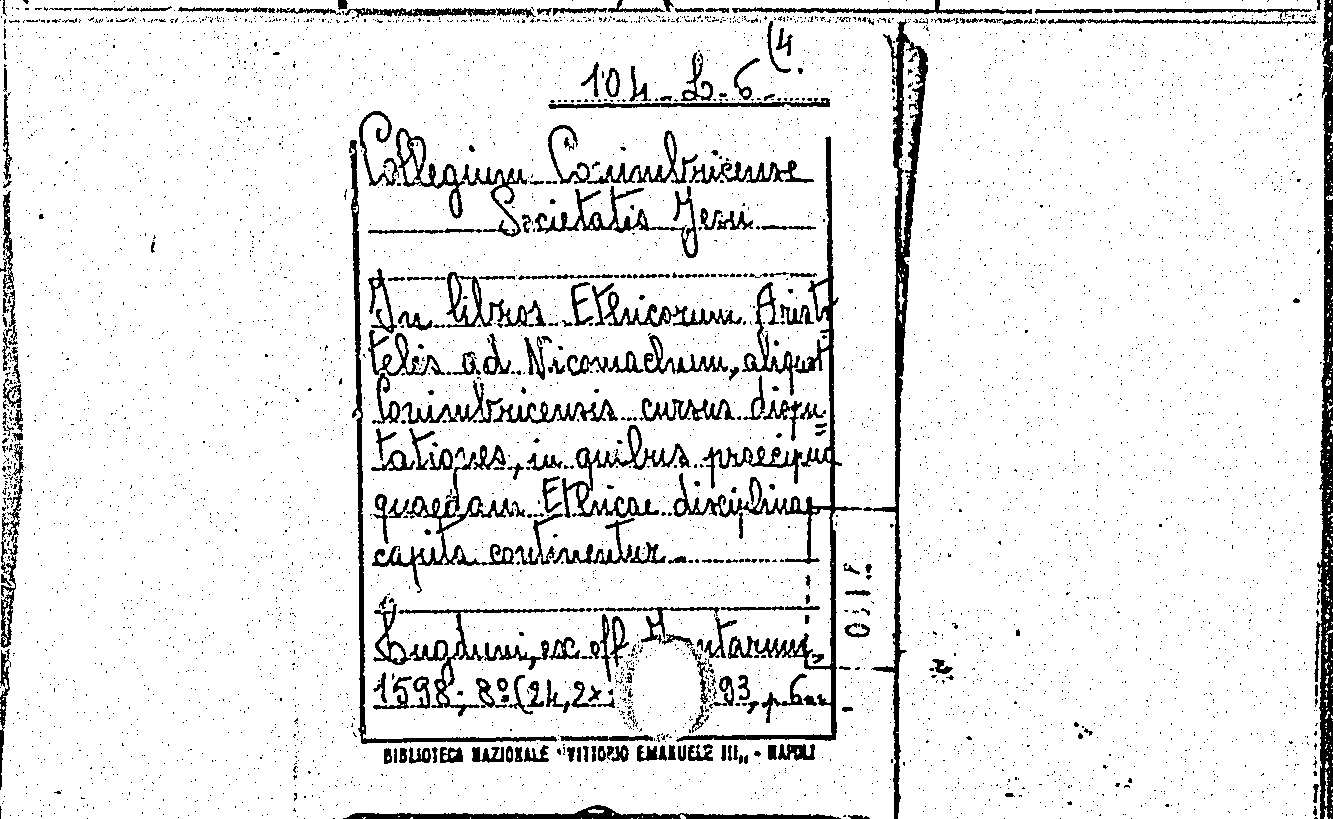 104-L-6(4.
Collegium Conimbricense
Societatis Jesu
In libros Ethicorum Aristo
telis ad Nicomachum, aliquot
Conimbricensis cursus dispu
tationes, in quibus praecipua
quaedam Ethicae disciplinae
capita continentur.
Lugduni, ex off
1598; 8º (24, 2x 93, p. 6nn
BIBLIOTECA NAZIONALE "VITTORIO EMANUELE III„ - NAPOLI